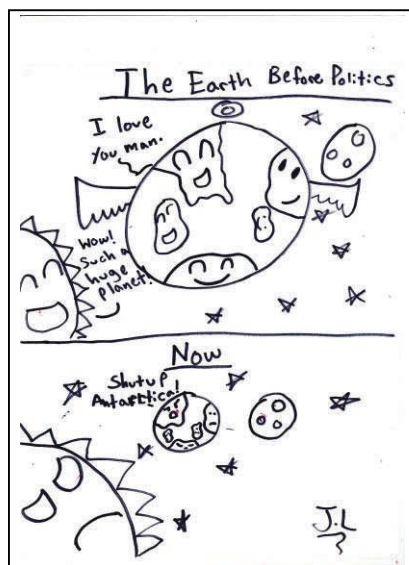 The Earth Before Politics
I love
you man.
Wow!
Such a
huge
planet!
Now
Shut up
Antarctica!
J.L